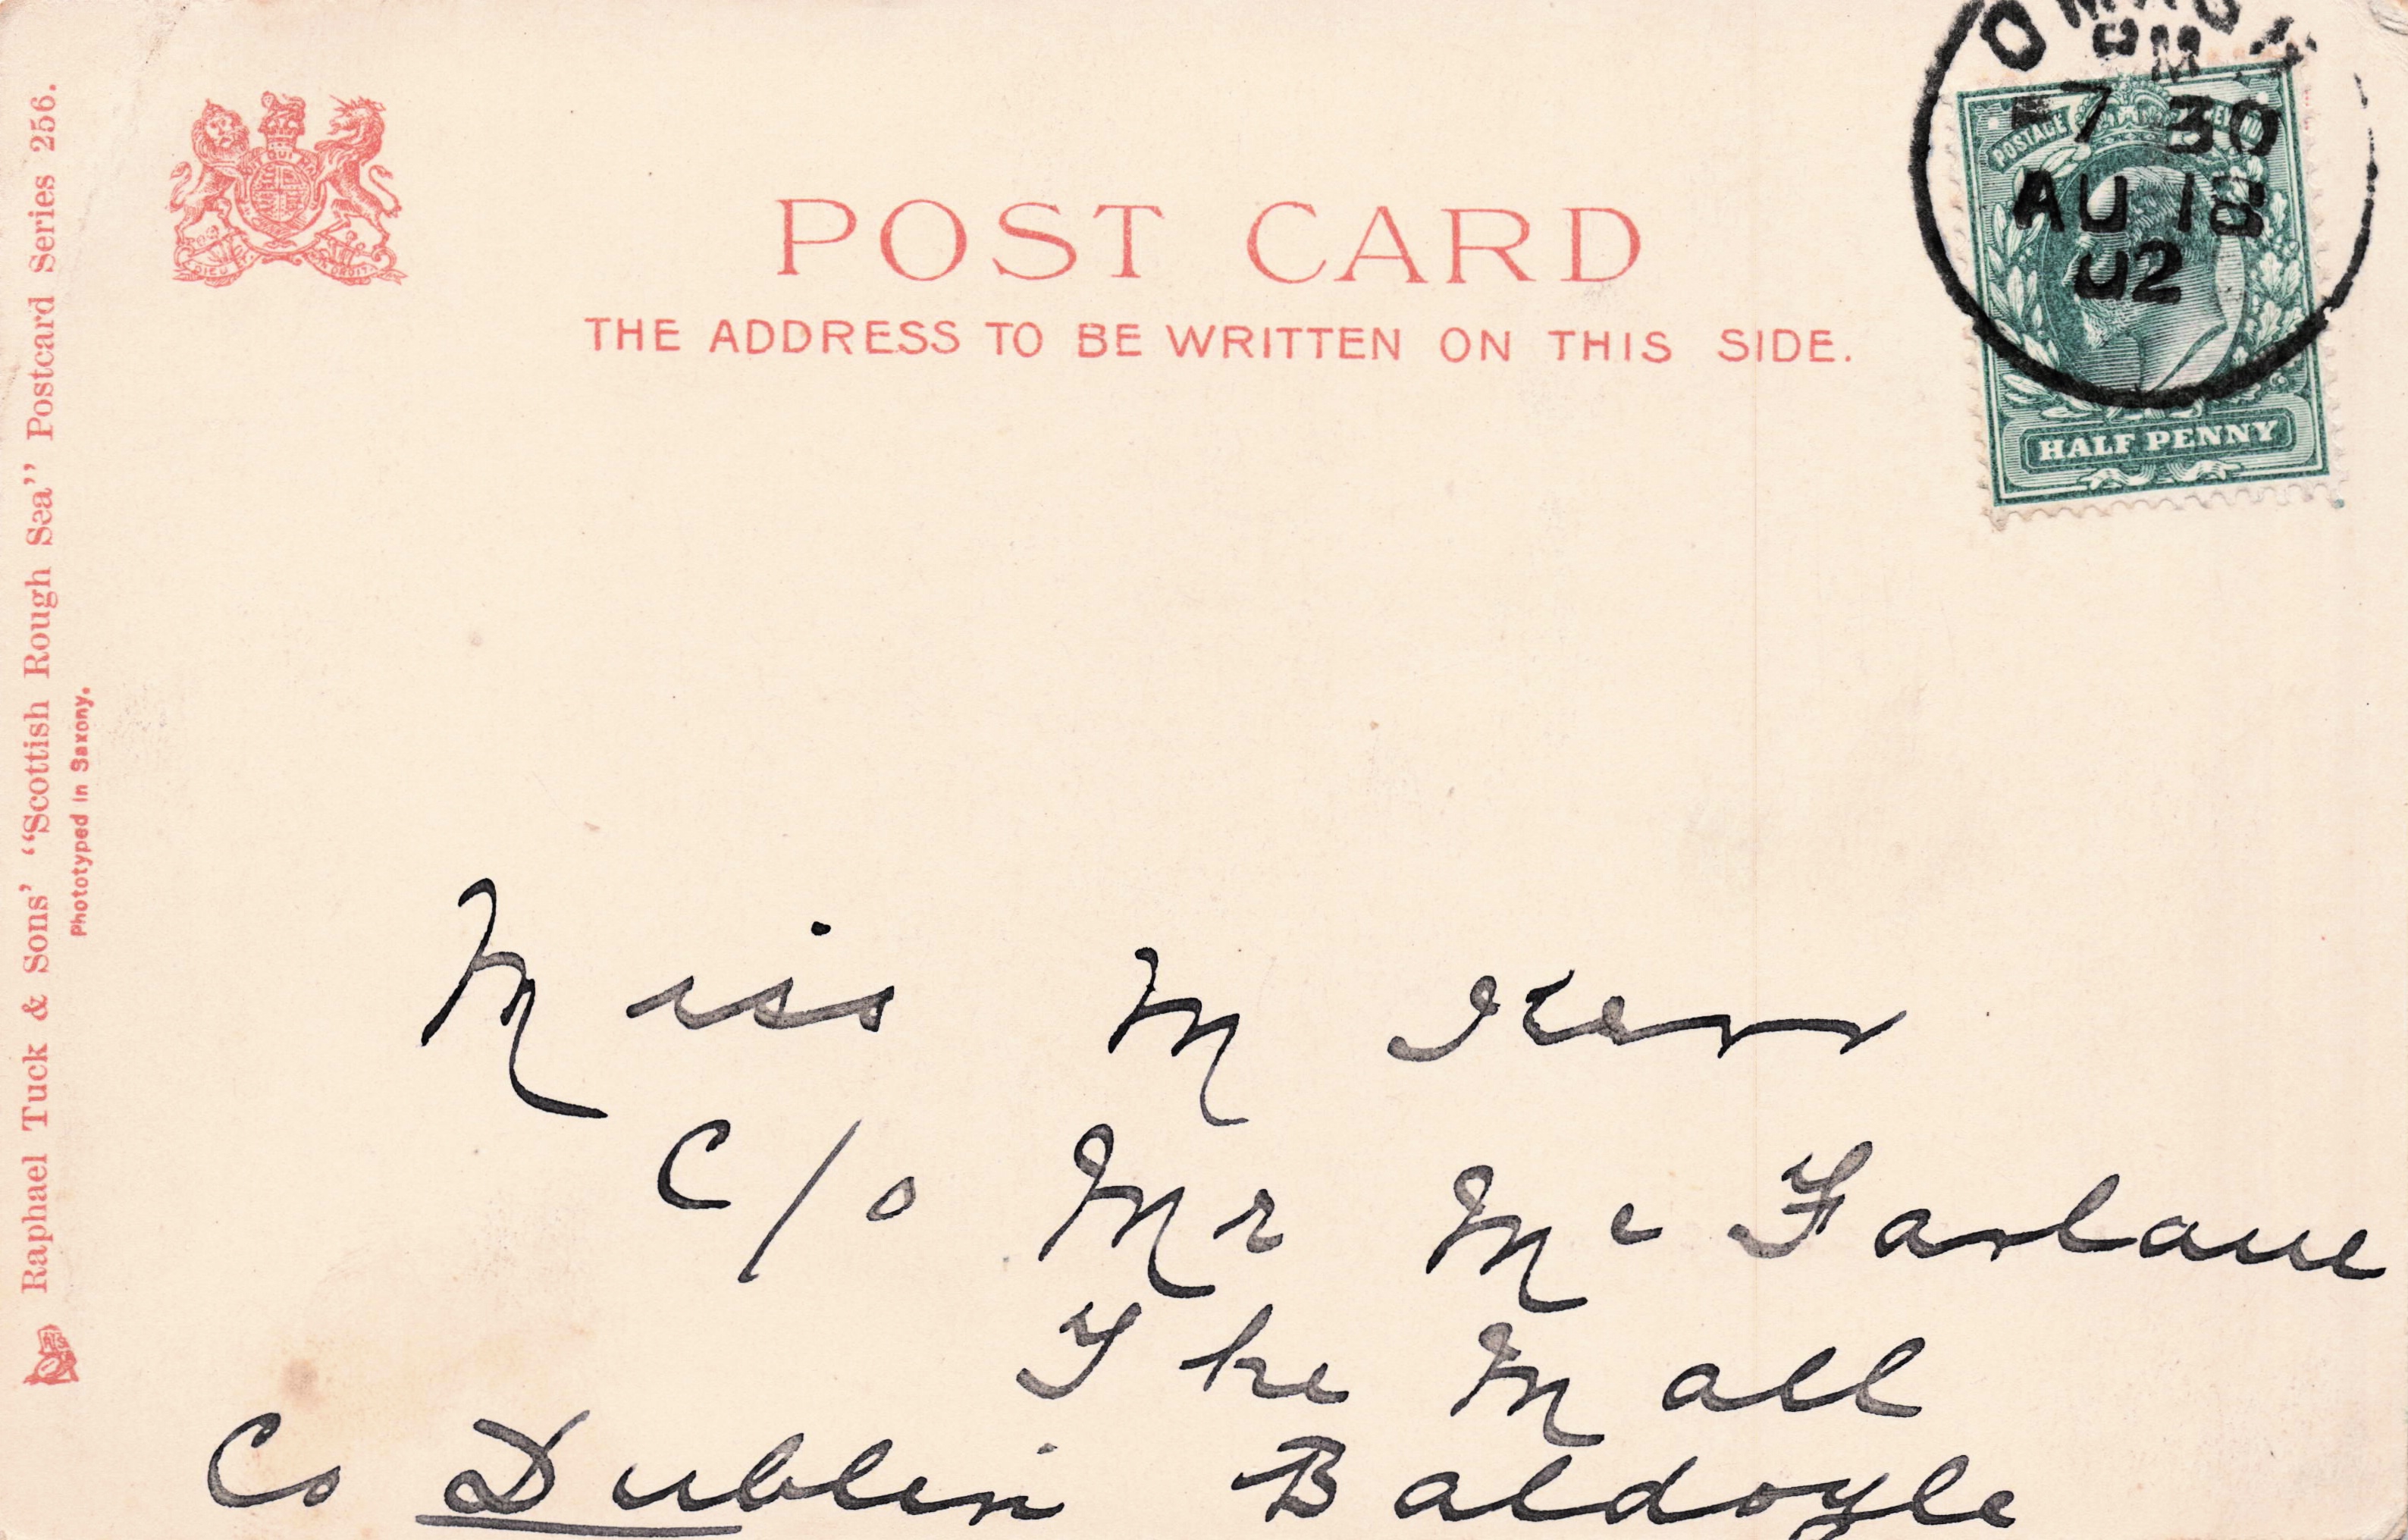 POST CARD
THE ADDRESS TO BE WRITTEN ON THIS SIDE.
OMAGH
PM
7 30
AU 18
02
POSTAGE
HALF PENNY
Raphael Tuck & Sons' "Scottish Rough Sea" Postcard Series 256.
Phototyped in Saxony.
DIEU
DROIT
Miss M Kerr
C/o Mr Mc Farlane
The Mall
Co Dublin Baldoyle